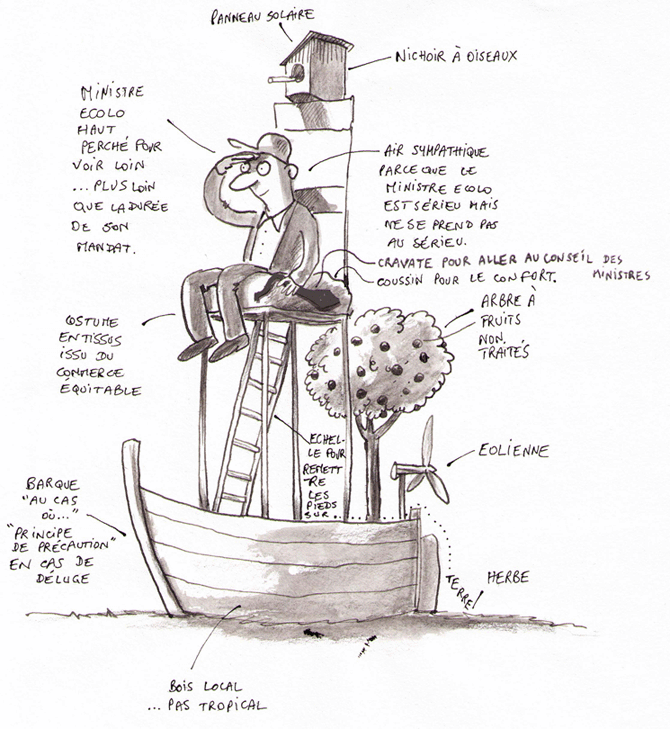 PANNEAU SOLAIRE
NICHOIR À OISEAUX
MINISTRE
ECOLO
HAUT
PERCHÉ POUR
VOIR LOIN
... PLUS LOIN
QUE LA DURÉE
DE SON
MANDAT.
AIR SYMPATHIQUE
PARCE QUE LE
MINISTRE ECOLO
EST SÉRIEU MAIS
NE SE PREND PAS
AU SÉRIEU.
CRAVATE POUR ALLER AU CONSEIL DES
MINISTRES
COUSSIN POUR LE CONFORT.
ARBRE À
FRUITS
NON
TRAITÉS
COSTUME
EN TISSUS
ISSU DU
COMMERCE
ÉQUITABLE
ECHEL-
LE POUR
REMETT
RE
LES
PIEDS
SUR...
TERRE!
EOLIENNE
BARQUE
"AU CAS
OÙ..."
"PRINCIPE
DE PRÉCAUTION"
EN CAS DE
DÉLUGE
HERBE
BOIS LOCAL
... PAS TROPICAL